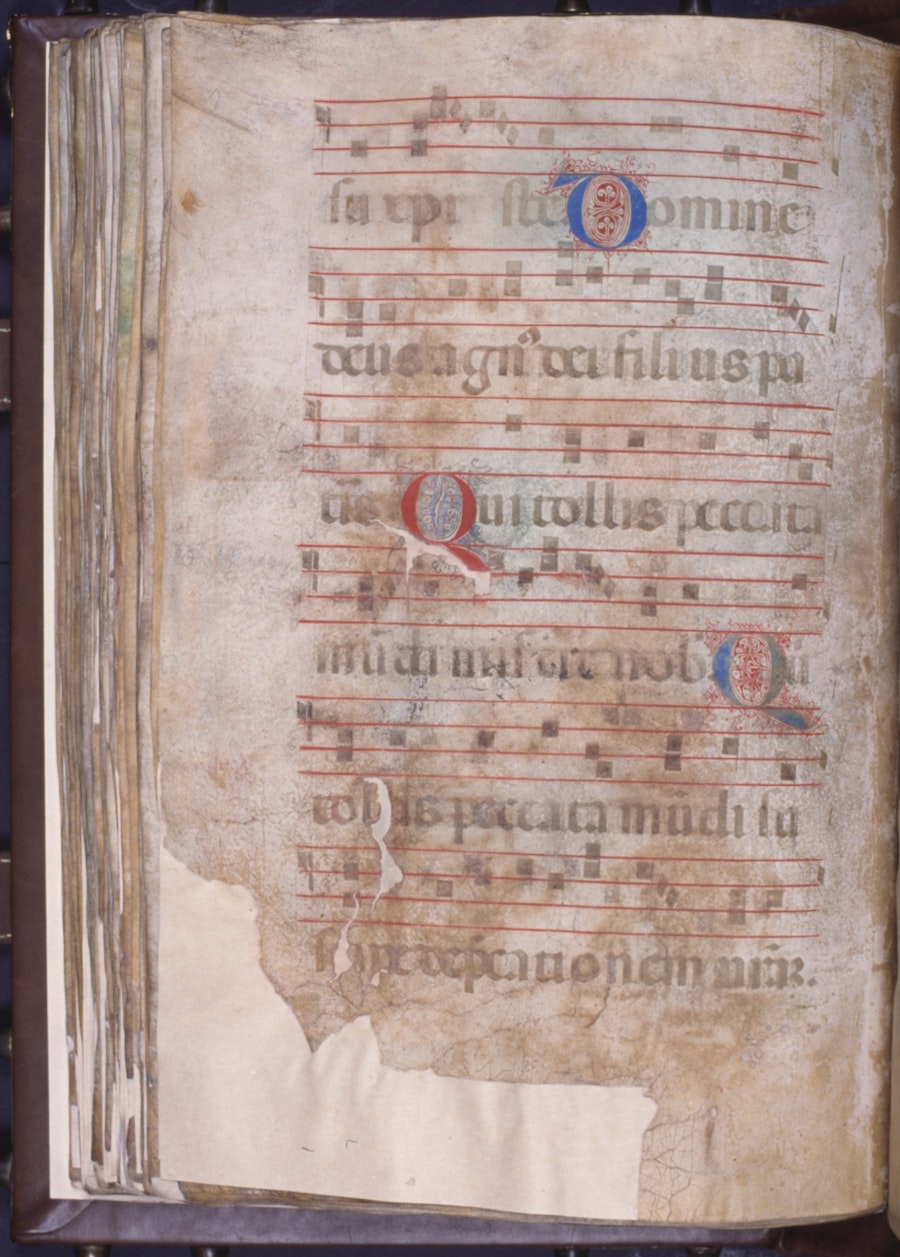 su xpi ste Domine
deus agn' dei filius pa
tris Qui tollis peccata
mūdi miserere nob Qui
tollis peccata mūdi su
scipe dep̄cationem nr̄m.